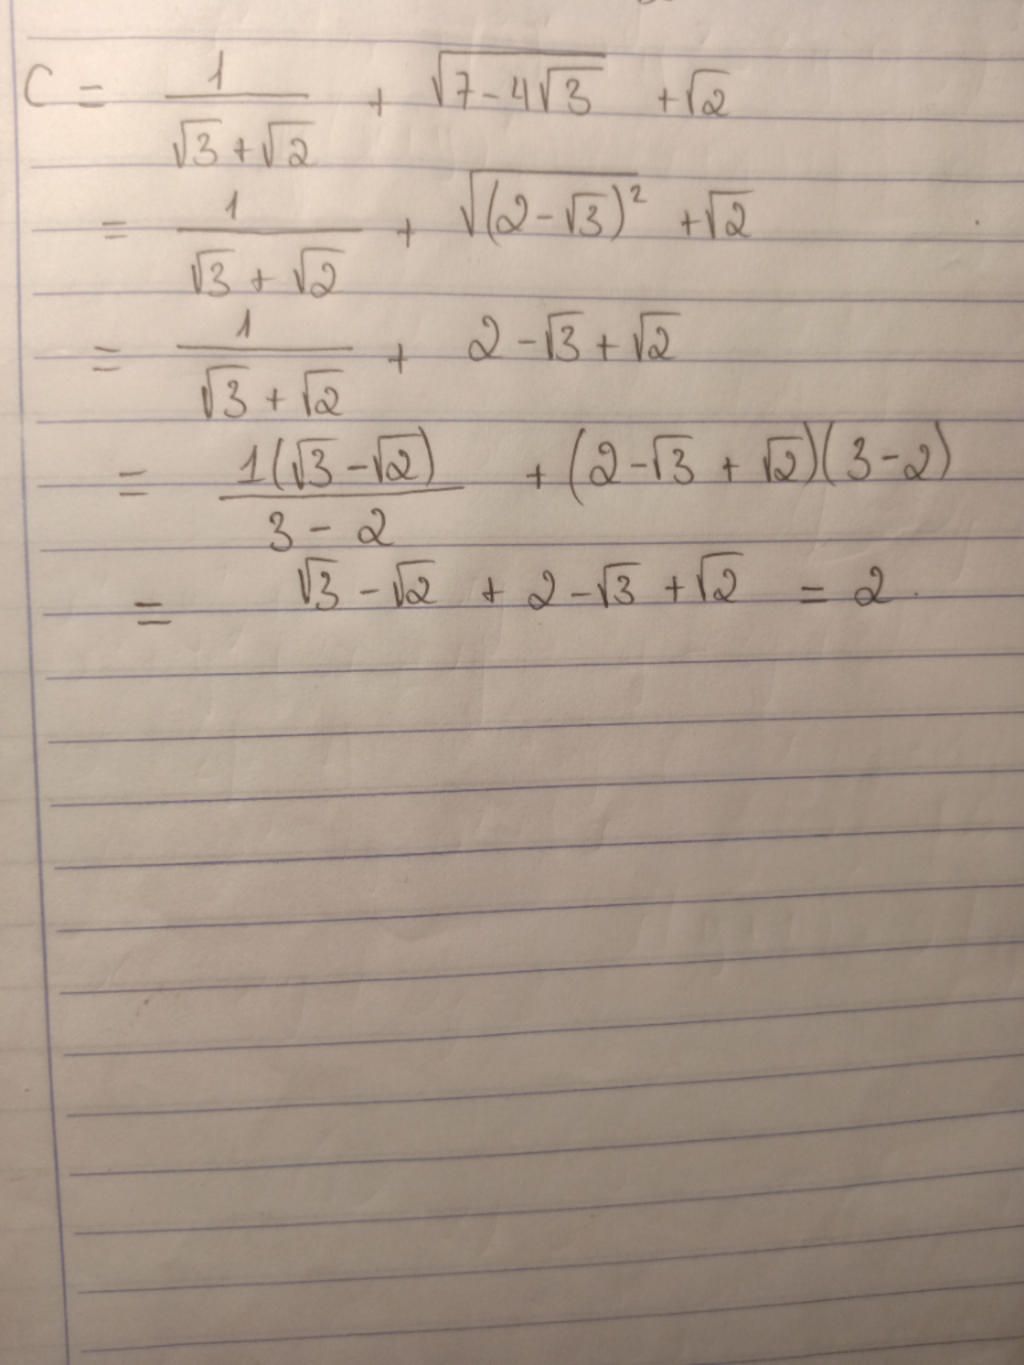 C = 1/(√3+√2) + √(7-4√3) + √2
= 1/(√3+√2) + √((2-√3)²) + √2
= 1/(√3+√2) + 2-√3+√2
= 1(√3-√2)/(3-2) + (2-√3+√2)(3-2)
= √3-√2 + 2-√3+√2 = 2.